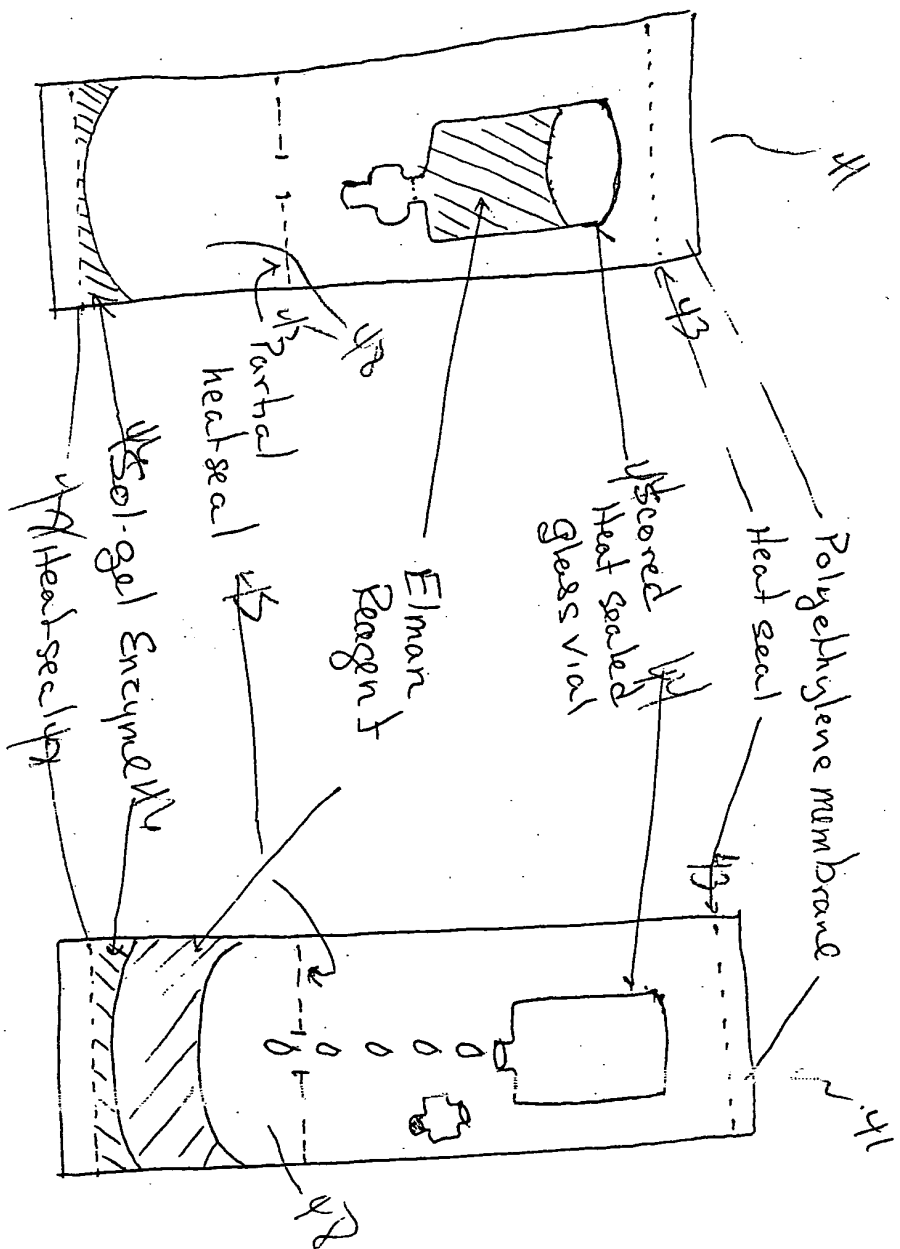 41
43
Polyethylene membrane
Heat seal
43
41
Scored
Heat sealed
glass vial
Elman
Reagent
48
43
Partial
heat seal
43
48
Sol-gel Enzyme
Heat-seal